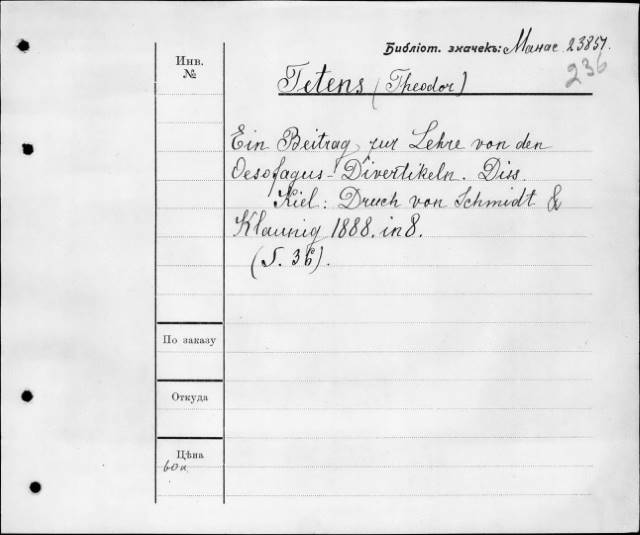 Библіот. значекъ: Манас 23857.
236
Инв.
№
Tetens (Theodor)
Ein Beitrag zur Lehre von den
Oesofagus-Divertikeln. Diss.
Kiel: Druch von Schmidt &
Klaunig 1888. in 8.
(S. 36).
По заказу
Откуда
Цѣна
60к